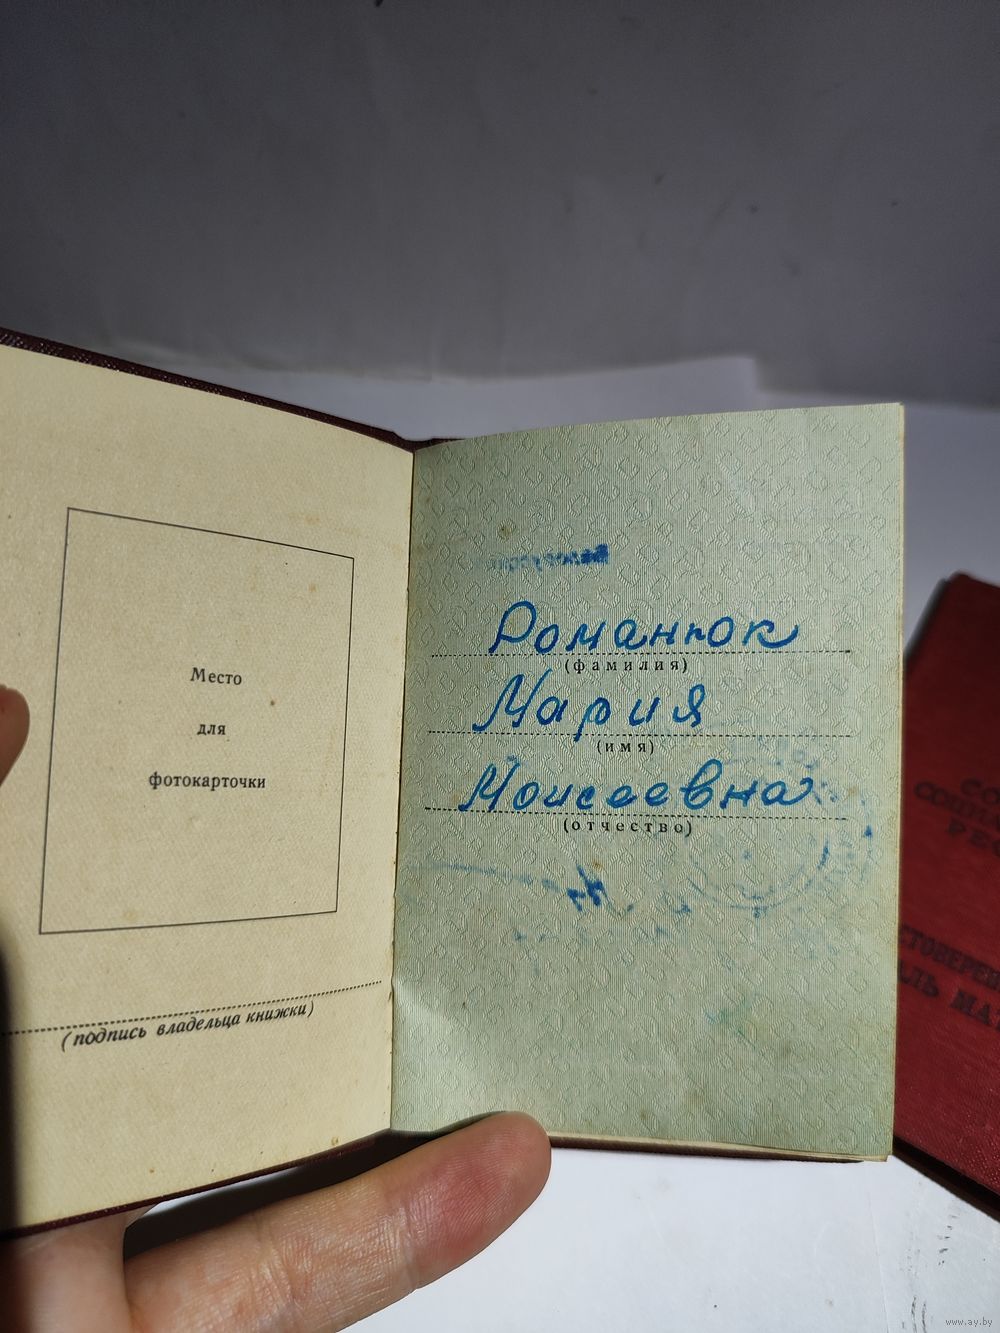 Место
для
фотокарточки
(подпись владельца книжки)
Романюк
(фамилия)
Мария
(имя)
Моисеевна
(отчество)
www.ay.by